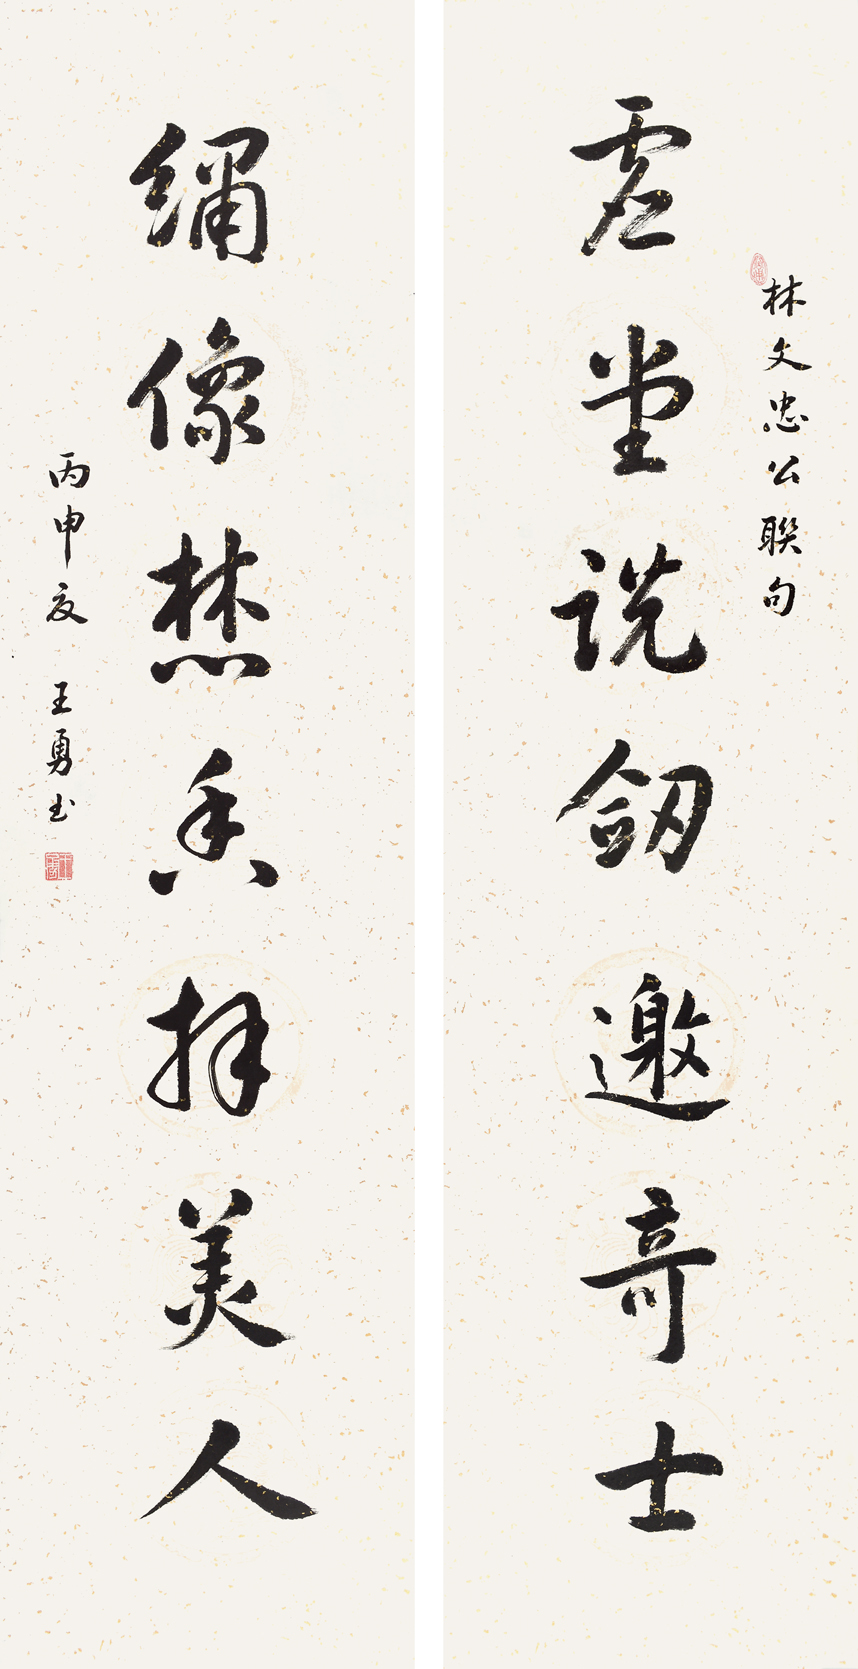 林文忠公聯句
虚堂説劔邀竒士
繡像焚香拜美人
丙申夏 王勇书